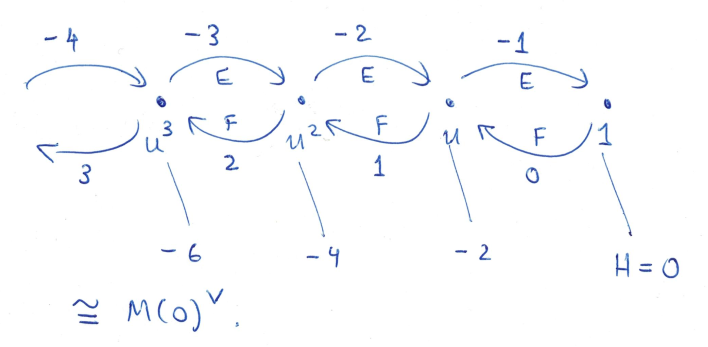 -4 -3 -2 -1
E E E
u³ F u² F u F 1
3 2 1 0
-6 -4 -2 H = 0
≅ M(0)^∨.